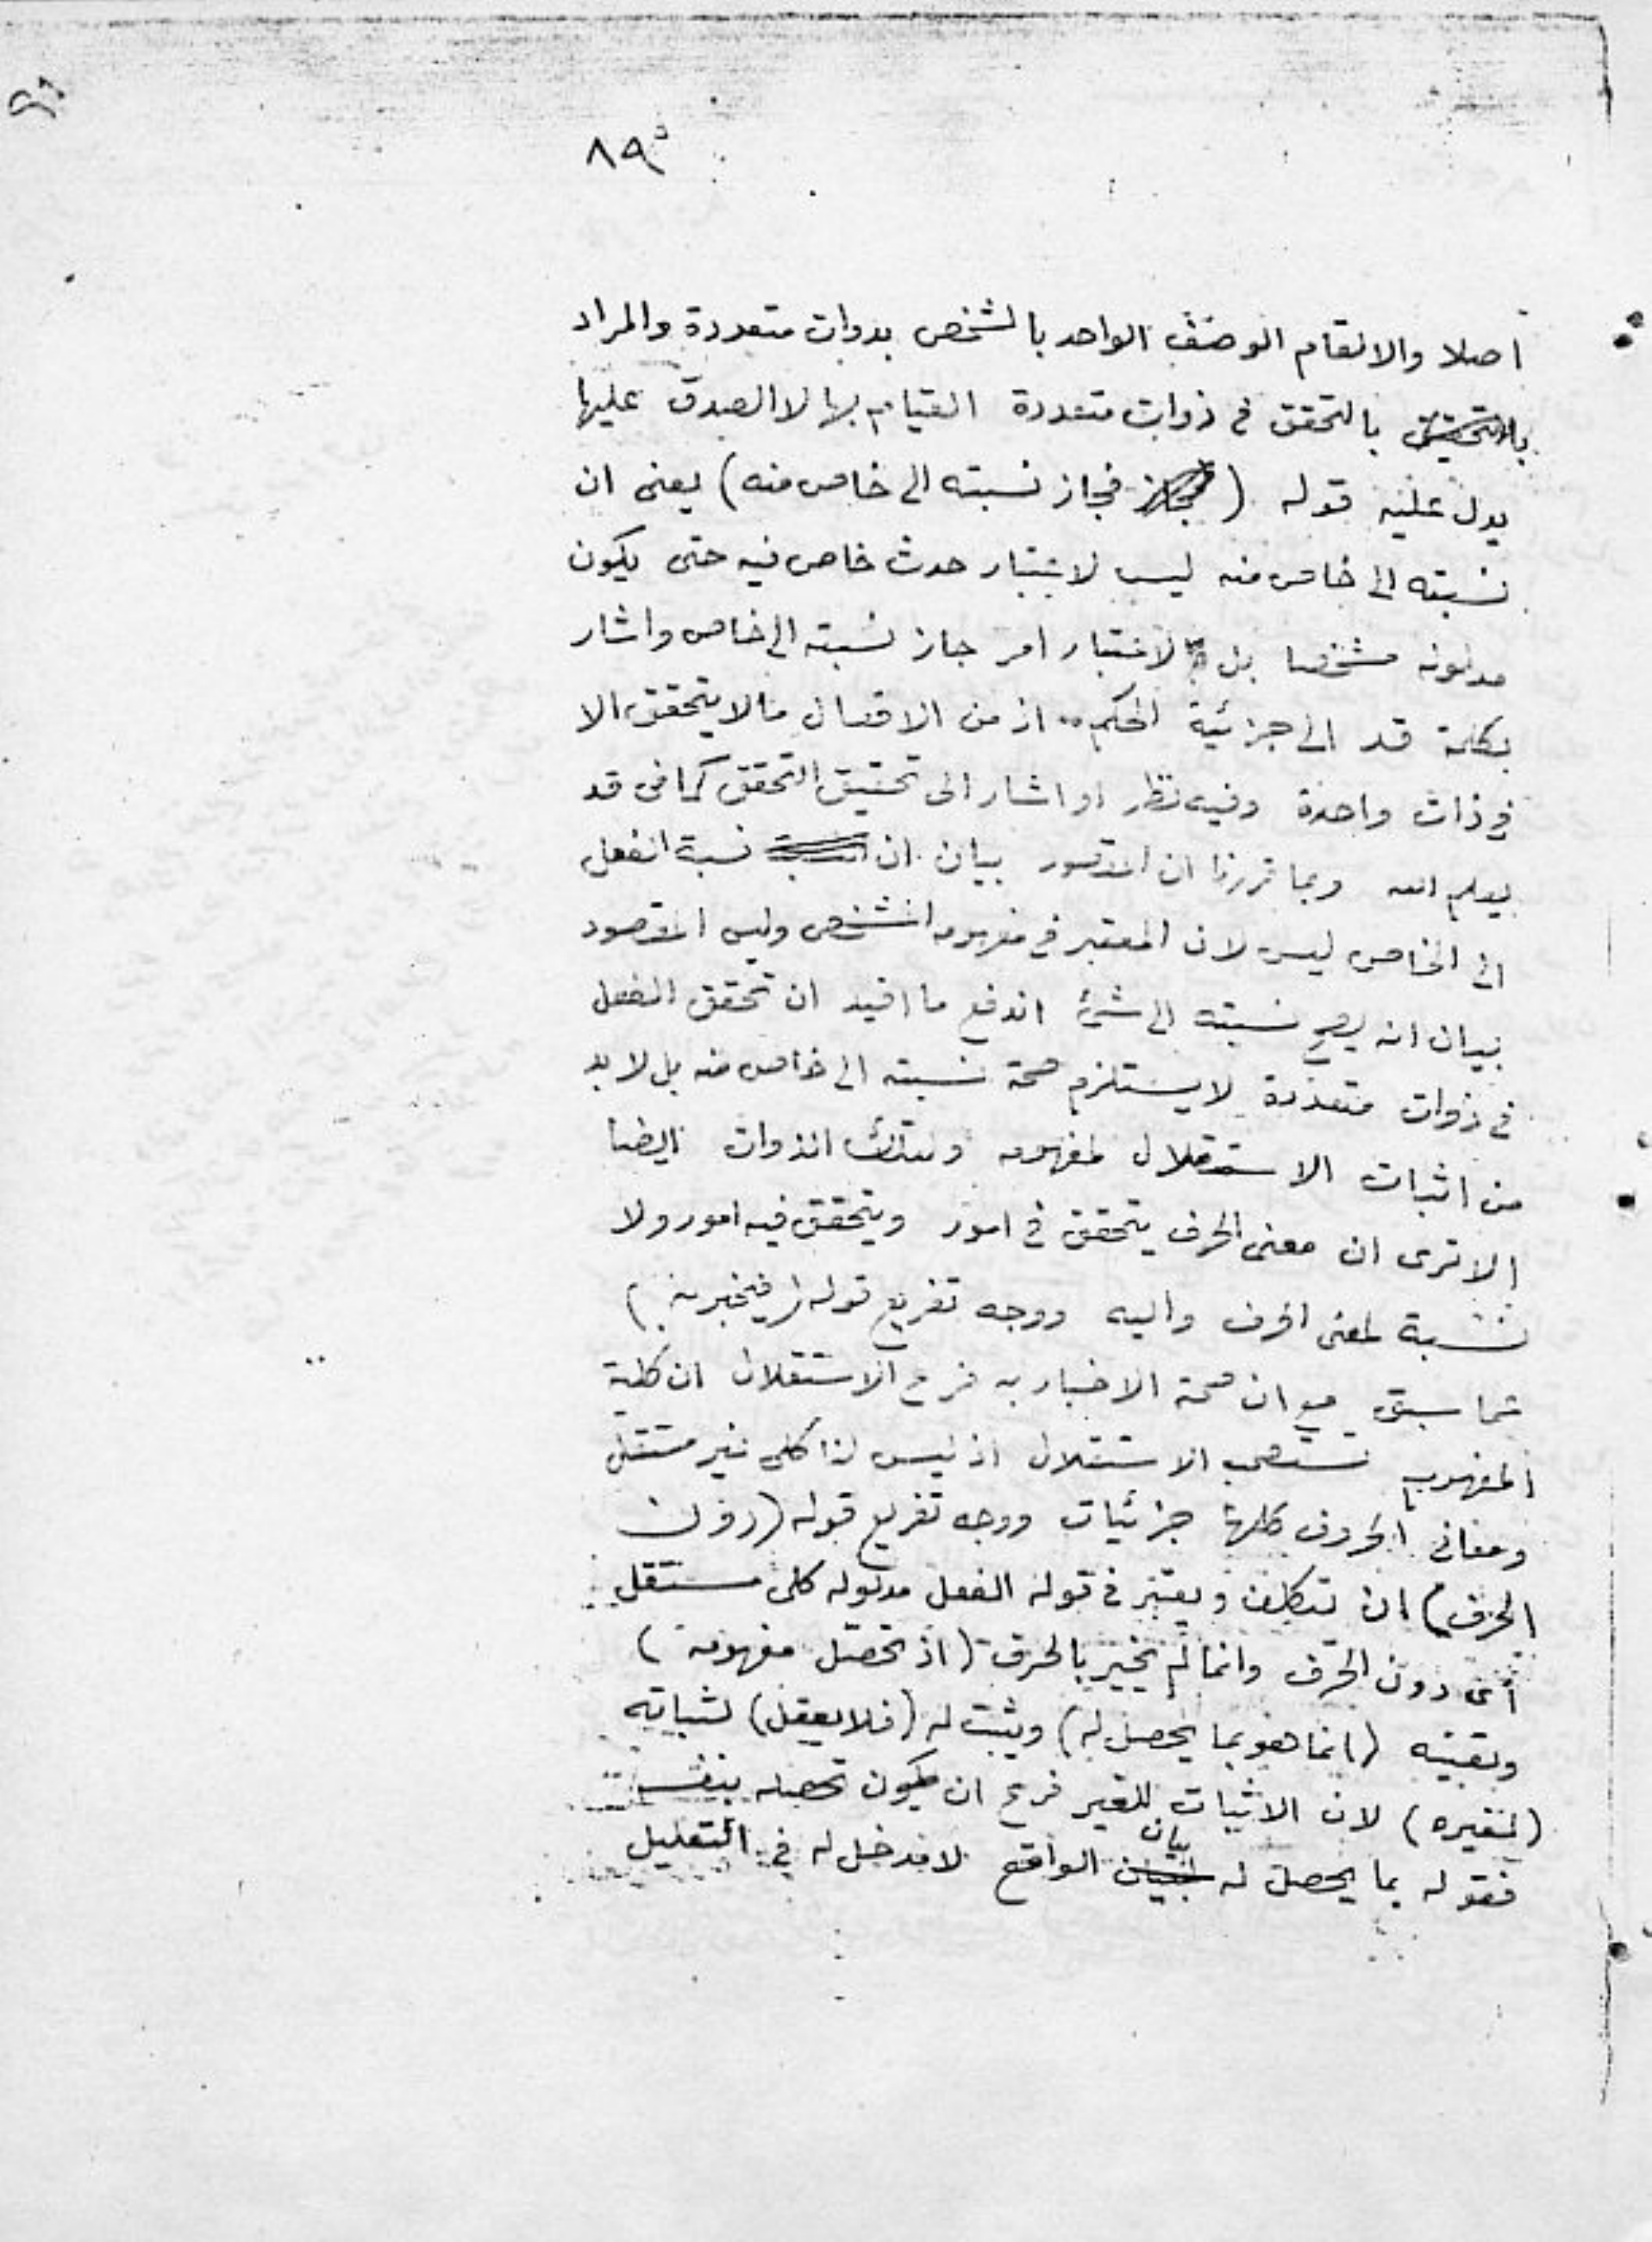 ٨٩
اصلا والالقام الوصف الواحد بالشخص بدوات متعددة والمراد
بالتحقق في ذوات متعددة القيام بها لا الصدق عليها
يدل عليه قوله (فجاز نسبته الى خاص منه) يعنى ان
نسبته الى خاص منه ليس لاعتبار حدث خاص فيه حتى يكون
مدلوله مشخصا بل لاعتبار امر جاز نسبته الى خاص واشار
بكلمة قد الى جزئية الحكم اذ من الافعال مالا يتحقق الا
في ذات واحدة وفيه نظر او اشار الى تحقيق التحقق كما فى قد
يعلم الله وبما قررنا ان المقصود بيان ان نسبة الفعل
الى الخاص ليس لان المعتبر في مفهومه الشخص وليس المقصود
بيان انه يصح نسبته الى شئ اندفع ما افيد ان تحقق الفعل
في ذوات متعددة لا يستلزم صحة نسبته الى خاص منه بل لا بد
من اثبات الاستقلال لمفهومه ولتلك الذوات ايضا
الا ترى ان معنى الحرف يتحقق في امور ويتحقق فيه امور ولا
نسبة لمعنى الحرف واليه ووجه تفريع قوله (فيخبر به)
عما سبق مع ان صحة الاخبار به فرع الاستقلال ان كلية
المفهوم تستصحب الاستقلال اذ ليس لنا كلى غير مستقل
ومعانى الحروف كلها جزئيات ووجه تفريع قوله (دون
الحرف) ان تتكلف ويعتبر في قوله الفعل مدلوله كلى مستقل
أى دون الحرف وانما لم يخبر بالحرف (اذ تحصل مفهومه)
وتعينه (انما هو بما يحصل له) ويثبت له (فلا يعقل) لثباته
(لغيره) لان الاثبات للغير فرع ان يكون تحصله بنفسه
فقوله بما يحصل له بيان الواقع لا مدخل له في التعليل